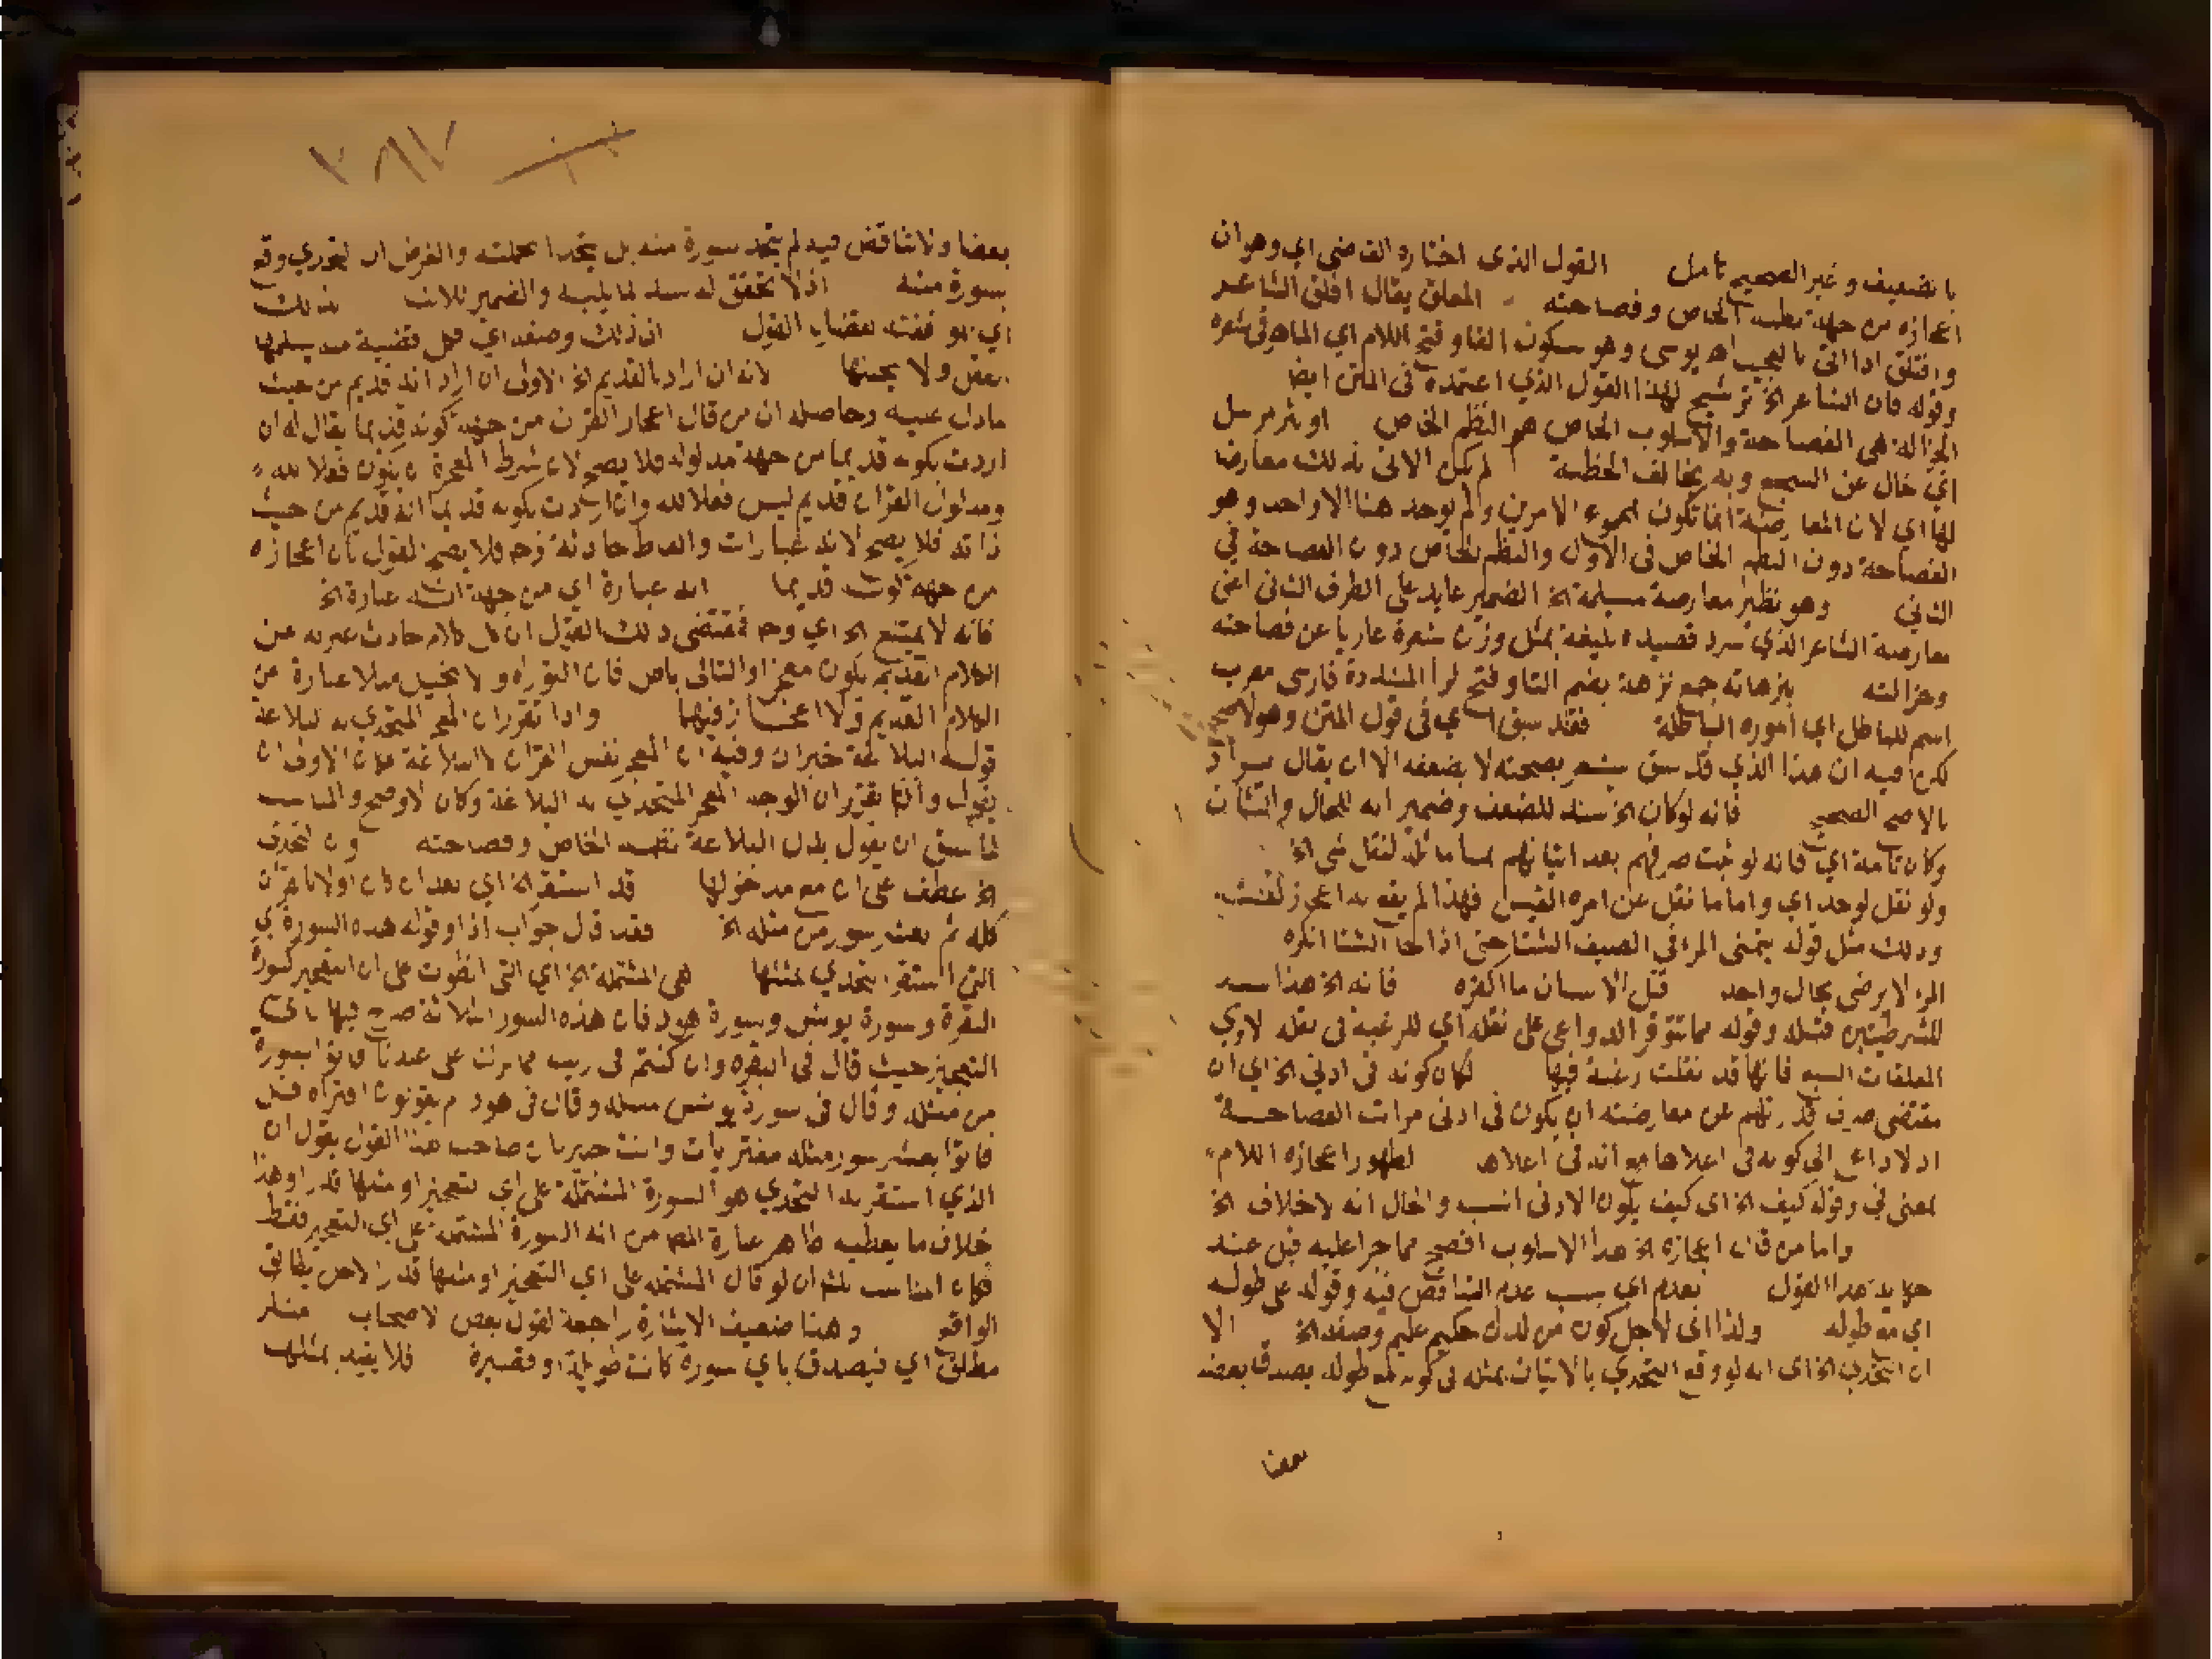 بالضعيف وغير الصحيح تامل القول الذى اختاره القاضى اي وهو ان
اعجازه من جهة نظمه الخاص وفصاحته المفلق يقال افلق الشاعر
وافتلق اذا اتى بالعجيب اهـ يوسى وهو بسكون الفا وفتح اللام اي الماهر في شعره
وقوله فان الشاعر الخ ترشيح لهذا القول الذي اعتمده فى المتن ايضا
الجزالة هى الفصاحة والاسلوب الخاص هو النظم الخاص او نثر مرسل
اي خال عن السجع وبه يخالف الخطبة لم يكن الاتى بذلك معارضا
لها اي لان المعارضة انما تكون بمجموع الامرين ولم يوجد هنا الا واحد وهو
الفصاحة دون النظم الخاص فى الاول والنظم الخاص دون الفصاحة في
الثاني وهو نظير معارضة مسيلمة الخ الضمير عايد على الطرف الثانى اعنى
معارضة الشاعر الذي سرد قصيدة بليغة بمثل وزن شعره عاريا عن فصاحته
وجزالته بترهاته جمع ترهة بضم التا وفتح الرا المشددة فارسى معرب
اسم للباطل اي اموره الباطلة فقد سبق اي فى قول المتن وهو الصحيح
لكن فيه ان هذا الذي قد سبق يشعر بصحته لا بضعفه الا ان يقال مراد
بالاصح الصحيح فانه لو كان الخ سند للضعف وضمير انه للحال والشان
وكان تامة اي فانه لو ثبت صرفهم بعد اتيانهم بما ماثله لنقل شي الخ
ولو نقل لوجد اي واما ما نقل عن امرء القيس فهذا لم يقع به اعجاز
وذلك مثل قوله يتمنى المرء في الصيف الشتا حتى اذا جا الشتا انكره
المرء لا يرضى بحال واحد قتل الانسان ما اكفره فانه الخ هذا سند
للشرطيتين قبله وقوله مما تتوفر الدواعى على نقله اي للرغبة فى نقله
المعلقات السبع فانها قد نقلت رغبة فيها لكان كونه فى ادني الخ اي ان
مقتضى صرف قدرتهم عن معارضته ان يكون فى ادنى مراتب الفصاحة
اذ لا داعى الى كونه فى اعلاها مع انه فى اعلاها لظهور اعجازه اللام
بمعنى في وقوله كيف الخ اى كيف يكون الادنى انسب والحال انه لاخلاف الخ
واما من قال اعجازه الخ هذا الاسلوب افصح مما جرا عليه قبل عند
حكاية هذا القول بعدم اي بسبب عدم التناقض فيه وقوله على طوله
اي مع طوله ولذا اى لاجل كونه من لدن حكيم عليم وصفه الخ الا
ان التحدي الخ اى انه لو وقع التحدي بالاتيان بمثله فى كونه مع طوله يصدق بعضه
بعضا
بعضا ولا تناقض فيه لم يتحد بسورة منه بل يتحدا بجملته والغرض ان التحدي وقع
بسورة منه اذ لا تحقق له سند لما يليه والضمير للاثبات بذلك
اي هو قضيته بقضايا القول ان ذلك وصفه اي فكل قضية منه يسلمها
العقل ولا يحيلها لانه ان اراد بالقديم الخ الاولى ان اراد انه قديم من حيث
ما دل عليه وحاصله ان من قال اعجاز القران من جهة كونه قديما يقال له ان
اردت بكونه قديما من جهة مدلوله فلا يصح لان شرط المعجزة ان يكون فعلا لله
ومدلول القران قديم ليس فعلا لله وان اردت بكونه قديما انه قديم من حيث
ذاته فلا يصح لانه عبارات والفاظ حادثة وح فلا يصح القول بان اعجازه
من جهة كونه قديما انه عبارة اي من جهة انه عبارة الخ
فانه لا يمتنع الخ اي وح فمقتضى ذلك القول ان كل كلام حادث عبر به عن
الكلام القديم يكون معجزا والتالى باطل فان التوراة والانجيل مثلا عبارة عن
الكلام القديم ولا اعجاز فيهما واذا تقرر ان المعجز المتحدي به البلاغة
قوله البلاغة خبر ان وفيه ان المعجز نفس القران لا البلاغة فكان الاولى ان
يقول واذا تقرر ان الوجه المعجز المتحدي به البلاغة وكان الاوضح والمناسب
لما سبق ان يقول بدل البلاغة نظمه الخاص وفصاحته وان التحدي
الخ عطف على ان مع مدخولها قد استقر الخ اي بعد ان كان اولا بالقران
كله ثم بعشر سور من مثله الخ فقد قال جواب اذا وقوله هذه السورة اي
التي استقر التحدي بمثلها هى المشتملة الخ اي التى انطوت على اى التعجيز كسورة
البقرة وسورة يونس وسورة هود فان هذه السور الثلاثة صرح فيها بآي
التعجيز حيث قال فى البقره وان كنتم فى ريب مما نزلنا على عبدنا فاتوا بسورة
من مثله وقال فى سورة يونس مثله وقال فى هود ام يقولون افتراه قل
فاتوا بعشر سور مثله مفتريات وانت خبير بان صاحب هذا القول يقول ان
الذي استقر به التحدي هو السورة المشتملة على اي التعجيز او مثلها قدرا وهذا
خلاف ما يعطيه ظاهر عبارة المص من انه السورة المشتملة على اي التعجيز فقط
فكان المناسب للشا ان لو قال المشتملة على اي التعجيز او مثلها قدرا لاجل يطابق
الواقع وهنا ضعيف الاشارة راجعة لقول بعض الاصحاب
مطلق اي فيصدق باي سورة كانت طويلة او قصيرة فلا يقيد بمثلها